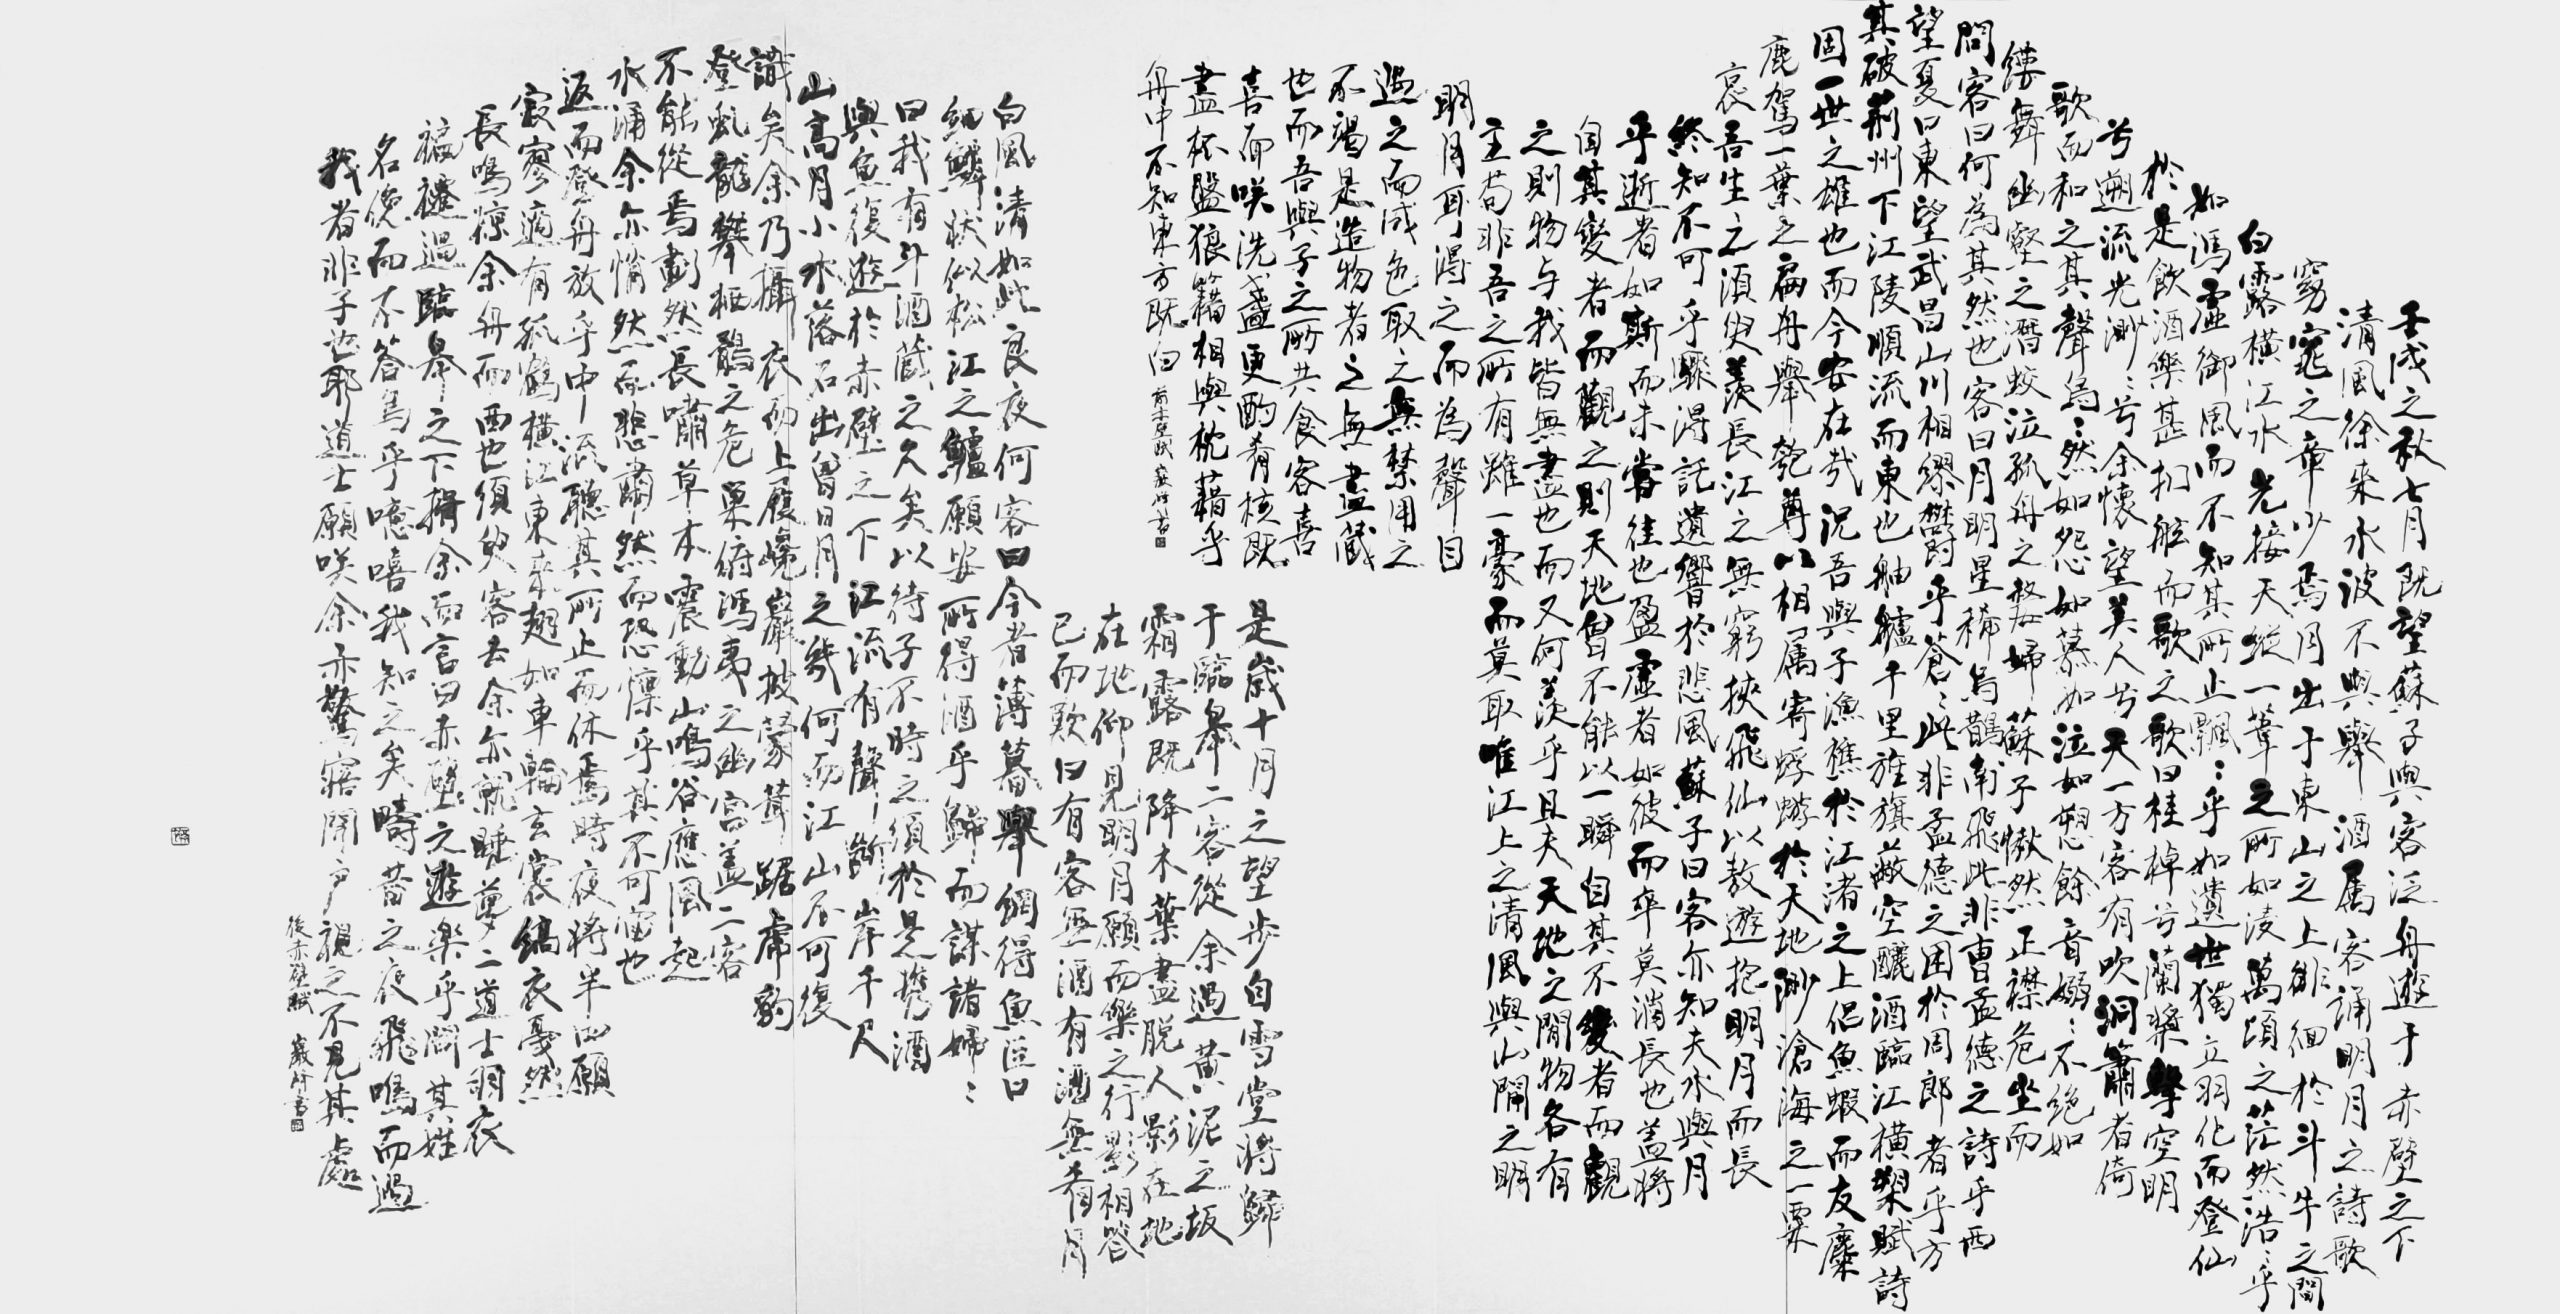 壬戌之秋七月既望蘇子與客泛舟遊于赤壁之下
清風徐來水波不興舉酒属客誦明月之詩歌
窈窕之章少焉月出于東山之上徘徊於斗牛之間
白露橫江水光接天縱一葦之所如淩萬頃之茫然浩〻乎
如馮虛御風而不知其所止飄〻乎如遺世獨立羽化而登仙
於是飲酒樂甚扣舷而歌之歌曰桂棹兮蘭槳擊空明
兮遡流光渺〻兮余懷望美人兮天一方客有吹洞簫者倚
歌而和之其聲烏〻然如怨如慕如泣如愬餘音嫋〻不絕如
縷舞幽壑之潛蛟泣孤舟之嫠婦蘇子愀然正襟危坐而
問客曰何為其然也客曰月明星稀烏鵲南飛此非曹孟德之詩乎西
望夏口東望武昌山川相繆欝乎蒼〻此非孟德之困於周郎者乎方
其破荊州下江陵順流而東也舳艫千里旌旗蔽空釃酒臨江橫槊賦詩
固一世之雄也而今安在哉況吾與子漁樵於江渚之上侶魚蝦而友麋
鹿駕一葉之扁舟舉匏尊以相属寄蜉蝣於天地渺滄海之一粟
哀吾生之須臾羨長江之無窮挾飛仙以敖遊抱明月而長
終知不可乎驟得託遺響於悲風蘇子曰客亦知夫水與月
乎逝者如斯而未嘗往也盈虛者如彼而卒莫消長也盖將
自其變者而觀之則天地曾不能以一瞬自其不變者而觀
之則物与我皆無盡也而又何羨乎且夫天地之間物各有
主苟非吾之所有雖一豪而莫取唯江上之清風與山間之明
明月耳得之而為聲目
過之而成色取之無禁用之
不竭是造物者之無盡藏
也而吾與子之所共食客喜
喜而咲洗盞更酌肴核既
盡杯盤狼籍相與枕藉乎
舟中不知東方既白 前赤壁賦
是歲十月之望步自雪堂將歸
于臨皋二客從余過黃泥之坂
霜露既降木葉盡脫人影在地
在地仰見明月顧而樂之行影相答
已而歎曰有客無酒有酒無肴月
白風清如此良夜何客曰今者薄暮舉網得魚巨口
細鱗狀似松江之鱸顧安所得酒乎歸而謀諸婦〻
曰我有斗酒藏之久矣以待子不時之須於是携酒
與魚復遊於赤壁之下江流有聲斷岸千尺
山高月小水落石出曾日月之幾何而江山不可復
識矣余乃攝衣而上履巉巖披蒙茸踞虎豹
登虬龍攀栖鶻之危巢俯馮夷之幽宮盖二客
不能從焉劃然長嘯草木震動山鳴谷應風起
水涌余亦悄然而悲肅然而恐懔乎其不可留也
返而登舟放乎中流聽其所止而休焉時夜將半四顧
寂寥適有孤鶴橫江東來翅如車輪玄裳縞衣戛然
長鳴掠余舟而西也須臾客去余亦就睡夢二道士羽衣
褊褼過臨皋之下揖余而言曰赤壁之遊樂乎問其姓
名俛而不答烏乎噫嘻我知之矣疇昔之夜飛鳴而過
我者非子也耶道士顧咲余亦驚寤開户視之不見其處
後赤壁賦